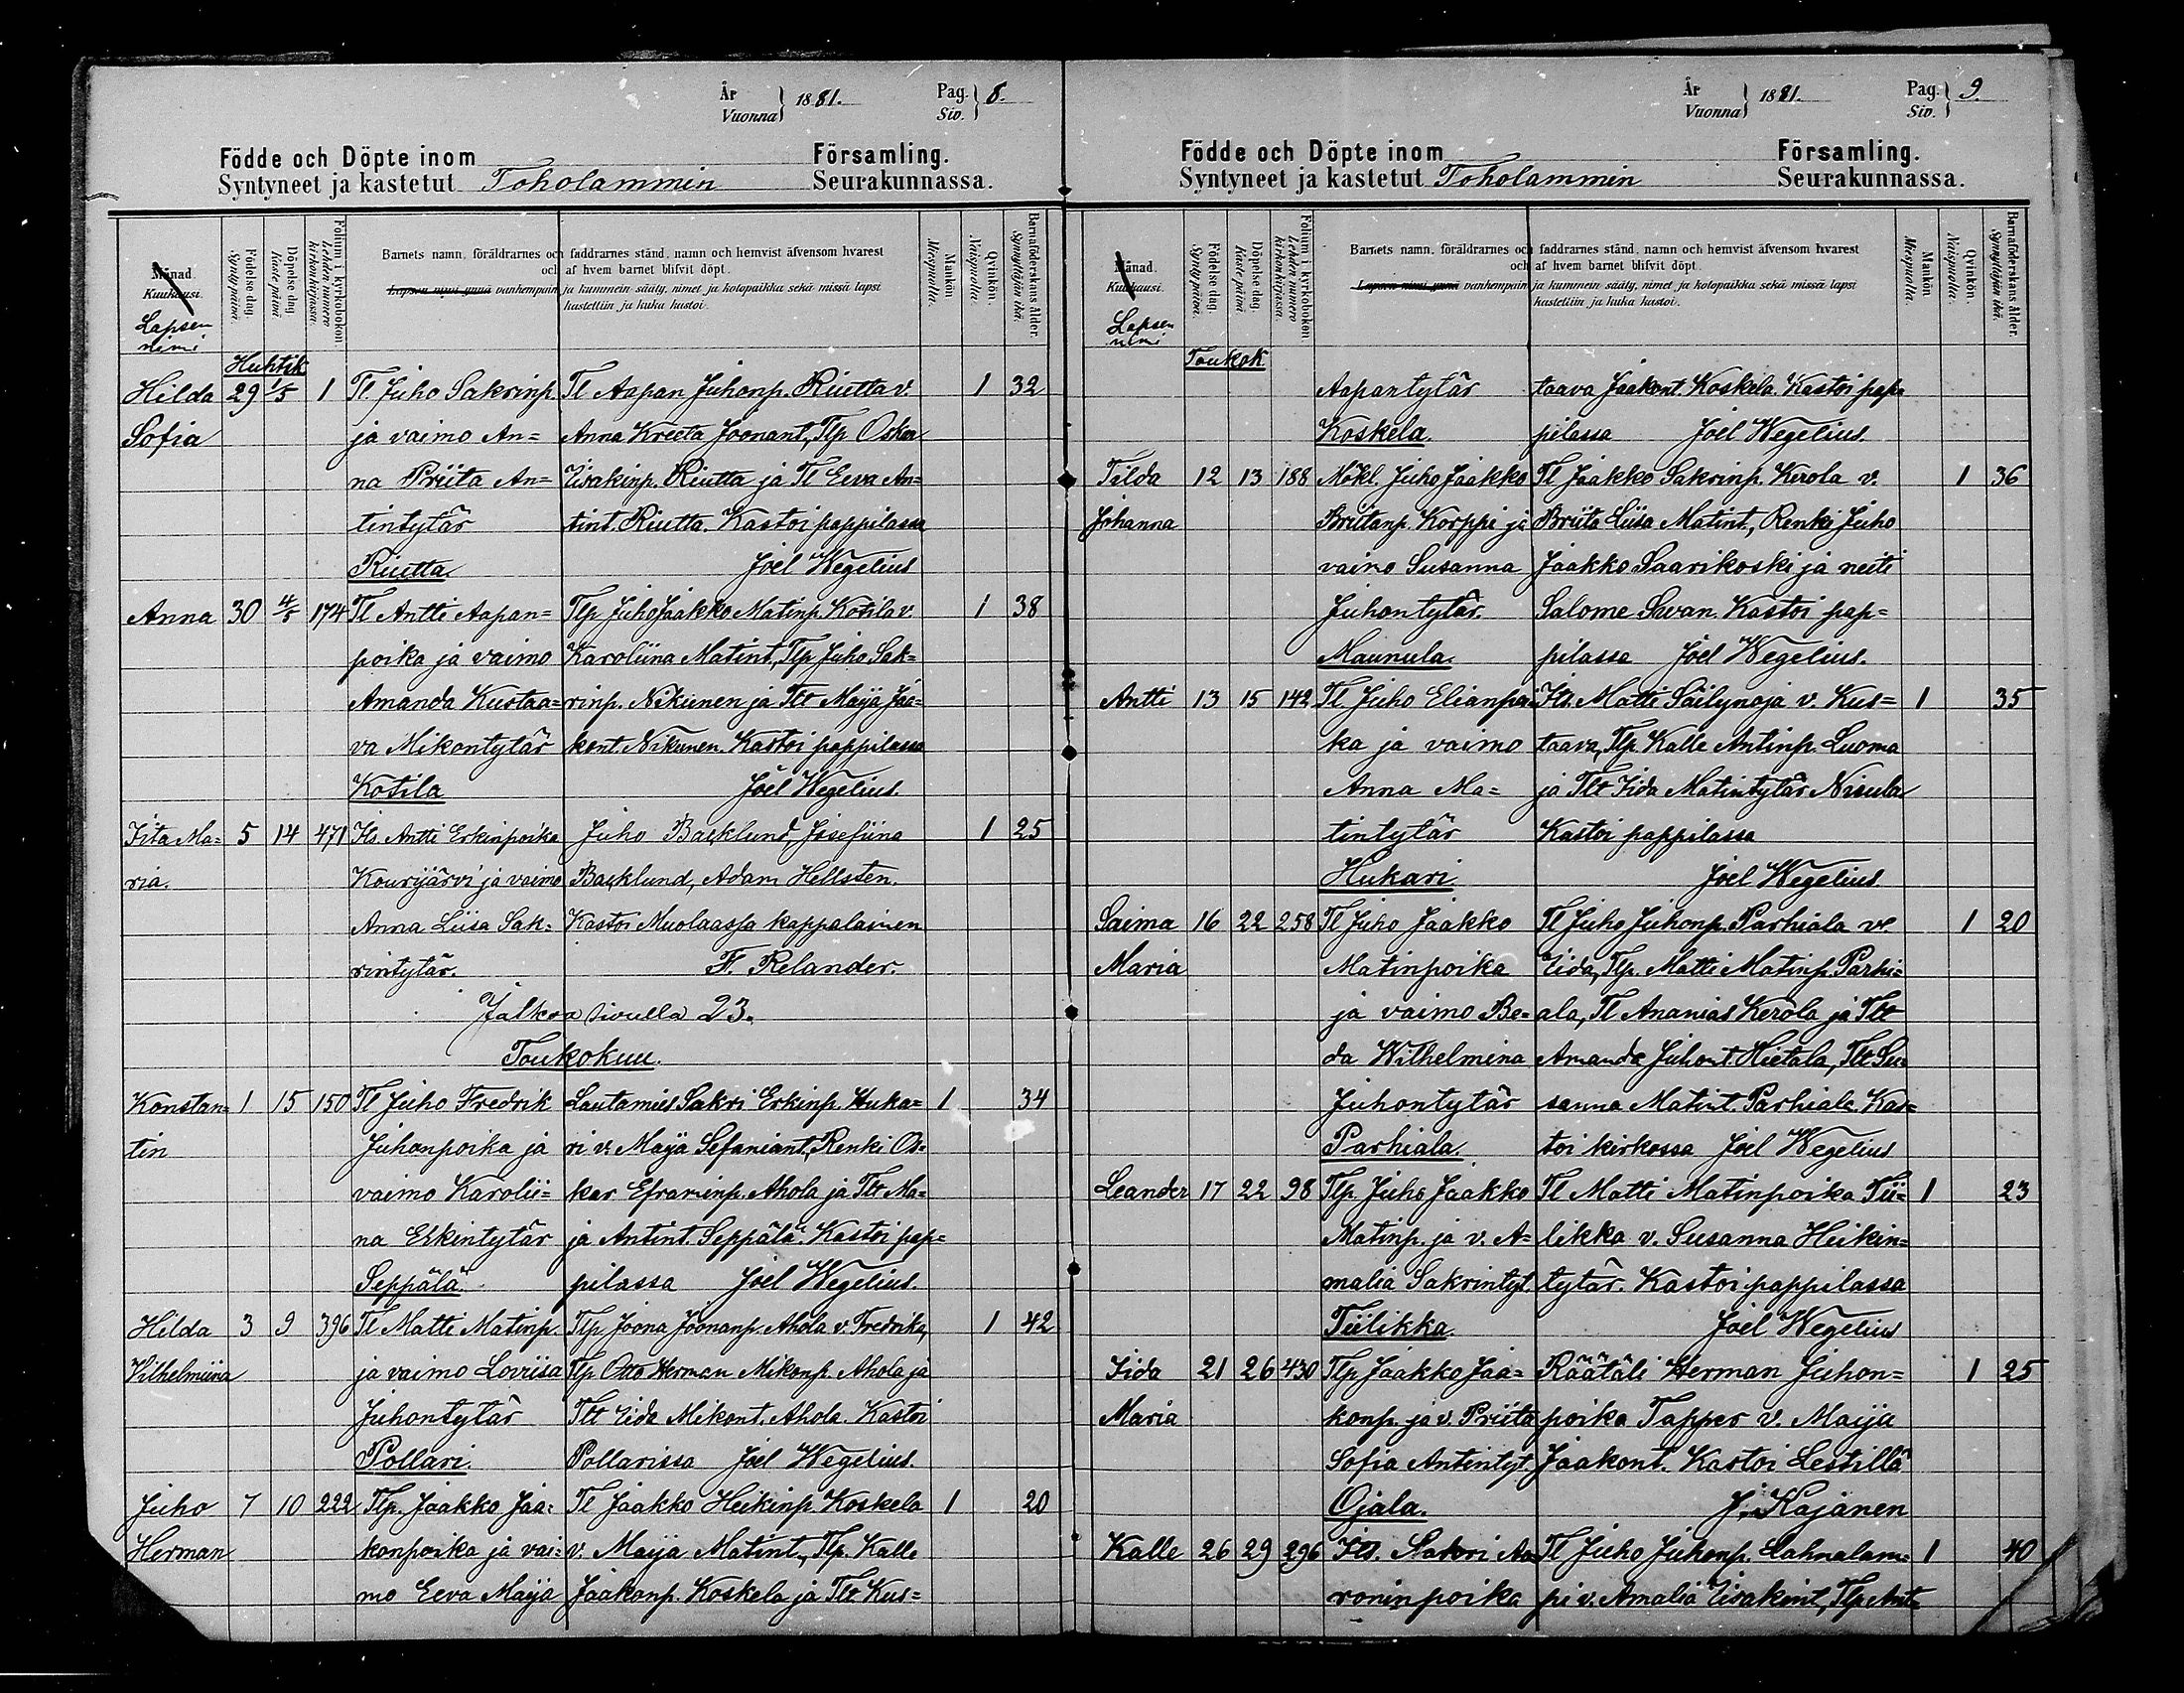 År
Vuonna } 1881.
Pag.
Siv. } 8.
Födde och Döpte inom Församling.
Syntyneet ja kastetut Toholammin Seurakunnassa.
Månad.
Kuukausi.
Lapsen
nimi
Födelse dag.
Synty päivä.
Döpelse dag.
Kaste päivä
Folium i kyrkoboken
Lehden numero kirkonkirjassa.
Barnets namn, föräldrarnes och faddrarnes stånd, namn och hemvist äfvensom hvarest
och af hvem barnet blifvit döpt.
Lapsen nimi ynnä vanhempain ja kummein sääty, nimet ja kotopaikka sekä missä lapsi
kastettiin ja kuka kastoi.
Mankön
Miespuolia.
Qvinkön.
Naispuolia.
Barnaföderskans ålder.
Synnyttäjän ikä.
Huhtik
Hilda 29 1/5 1 Tl. Juho Sakrinp. Tl Aapan Juhonp. Riutta v. 1 32
Sofia ja vaimo An= Anna Kreeta Joonant, Tlp Oskar
na Priita An= Eisakinp. Riutta ja Tl Eeva An=
tintytär tint. Riutta. Kastoi pappilassa
Riutta Joel Wegelius
Anna 30 4/5 174 Tl Antti Aapan= Tlp Juho Jaakko Matinp. Kotila v. 1 38
poika ja vaimo Karoliina Matint, Tlp Juho Sak=
Amanda Kustaa= rinp. Nikunen ja Tlt Maija Jaa=
va Mikontytär kont. Nikunen. Kastoi pappilassa
Kotila Joel Wegelius.
Iita Ma= 5 14 471 Its. Antti Erkinpoika Juho Backlund, Josefiina 1 25
ria. Kourijärvi ja vaimo Backlund, Adam Hellsten.
Anna Liisa Sak= Kastoi Muolaassa kappalainen
rintytär. F. Relander.
Jatkoa sivulla 23.
Toukokuu.
Konstan= 1 15 150 Tl Juho Fredrik Lautamies Sakri Erkinp. Huka= 1 34
tin Juhonpoika ja ri v. Maija Sefaniant, Renki Os=
vaimo Karolii= kar Eframinp. Ahola ja Tlt Ma=
na Erkintytär ja Antint. Seppälä. Kastoi pap=
Seppälä pilassa Joel Wegelius.
Hilda 3 9 396 Tl Matti Matinp. Tlp Joona Joonanp. Ahola v. Fredrika, 1 42
Vilhelmiina ja vaimo Loviisa Tlp Otto Herman Mikonp. Ahola ja
Juhontytär Tlt Eida Mikont. Ahola. Kastoi
Pollari. Pollarissa Joel Wegelius.
Juho 7 10 222 Tlp. Jaakko Jaa= Tl Jaakko Heikinp Koskela 1 20
Herman konpoika ja vai= v. Maija Matint., Tlp. Kalle
mo Eeva Maija Jaakonp. Koskela ja Tlt Kus=
År
Vuonna } 1881.
Pag.
Siv. } 9.
Födde och Döpte inom Församling.
Syntyneet ja kastetut Toholammin Seurakunnassa.
Månad.
Kuukausi.
Lapsen
nimi
Födelse dag.
Synty päivä.
Döpelse dag.
Kaste päivä
Folium i kyrkoboken
Lehden numero kirkonkirjassa.
Barnets namn, föräldrarnes och faddrarnes stånd, namn och hemvist äfvensom hvarest
och af hvem barnet blifvit döpt.
Lapsen nimi ynnä vanhempain ja kummein sääty, nimet ja kotopaikka sekä missä lapsi
kastettiin ja kuka kastoi.
Mankön
Miespuolia.
Qvinkön.
Naispuolia.
Barnaföderskans ålder.
Synnyttäjän ikä.
Toukok
Aapantytär taava Jaakont. Koskela. Kastoi pap=
Koskela. pilassa Joel Wegelius.
Tilda 12 13 188 Mökl. Juho Jaakko Tl Jaakko Sakrinp. Kerola v. 1 36
Johanna Briitanp. Korppi ja Briita Liisa Matint, Renki Juho
vaimo Susanna Jaakko Saarikoski ja neiti
Juhontytär. Salome Savan. Kastoi pap=
Maunula. pilassa Joel Wegelius.
Antti 13 15 142 Tl. Juho Elianpoi= Its. Matti Säilynoja v. Kus= 1 35
ka ja vaimo taava, Tlp. Kalle Antinp. Luoma
Anna Ma= ja Tlt Iida Matintytär Nisula
tintytär Kastoi pappilassa
Hukari Joel Wegelius
Saima 16 22 258 Tl Juho Jaakko Tl Juho Juhonp. Parhiala v. 1 20
Maria Matinpoika Eida, Tlp. Matti Matinp. Parhi=
ja vaimo Be= ala, Tl Ananias Kerola ja Tlt
da Wilhelmina Amanda Juhont. Hietala, Tlt Su=
Juhontytär sanna Matint. Parhiala. Kas=
Parhiala. toi kirkossa Joel Wegelius
Leander 17 22 98 Tlp. Juho Jaakko Tl Matti Matinpoika Tii= 1 23
Matinp. ja v. A= likka v. Susanna Heikin=
malia Sakrintyt. tytär. Kastoi pappilassa
Tiilikka. Joel Wegelius
Iida 21 26 430 Tlp Jaakko Jaa= Räätäli Herman Juhon= 1 25
Maria konp. ja v. Priita poika Tapper v. Maija
Sofia Antintyt. Jaakont. Kastoi Lestillä
Ojala. J. Kajanen
Kalle 26 29 296 Its. Sakri Aa= Tl Juho Juhonp. Lahnalam= 1 40
roninpoika pi v. Amalia Eisakint, Tlp Ant=